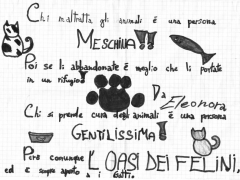 Chi maltratta gli animali è una persona
MESCHINA!!
Poi se li abbandonate è meglio che li portate
in un rifugio!
Da Eleonora
Chi si prende cura degli animali è una persona
GENTILISSIMA!
Però comunque L'OASI DEI FELINI,
ed è sempre aperto a i gatti.